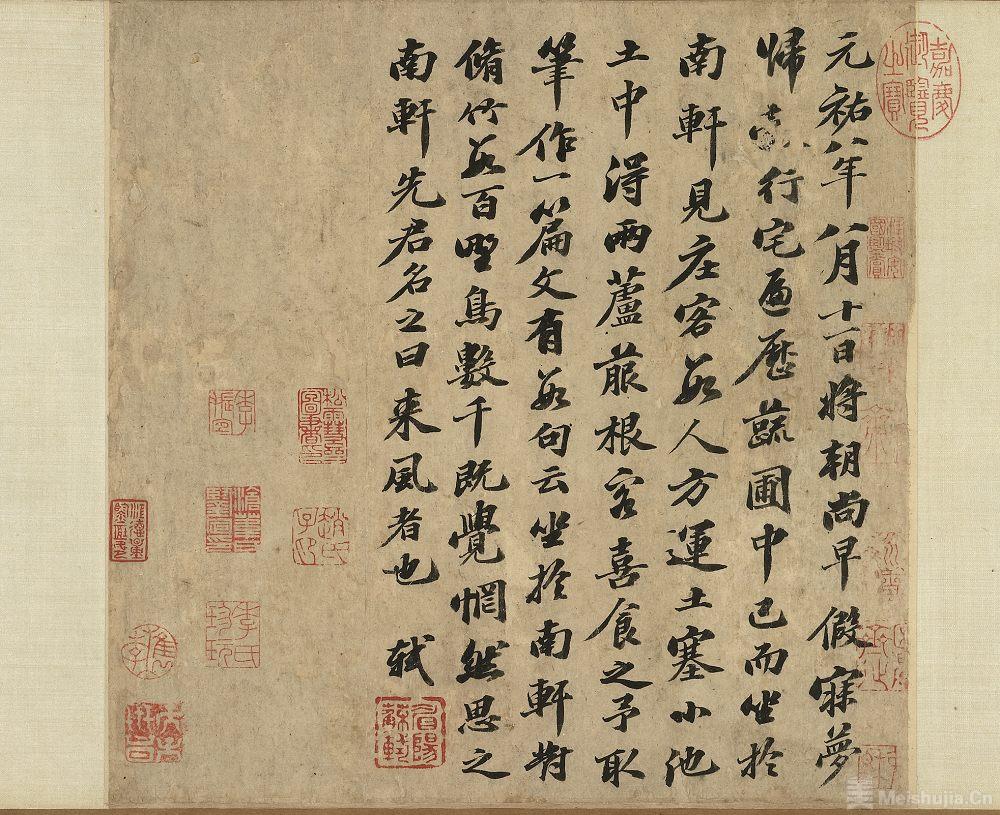 元祐八年八月十一日將朝尚早假寐夢
歸行宅遍歷蔬圃中已而坐於
南軒見庄客數人方運土塞小池
土中得兩蘆菔根客喜食之予取
筆作一篇文有數句云坐於南軒對
脩竹數百野鳥數千既覺惘然思之
南軒先君名之曰来風者也 軾
嘉慶御覽之寶
眉陽蘇軾
美 Meishujia.Cn